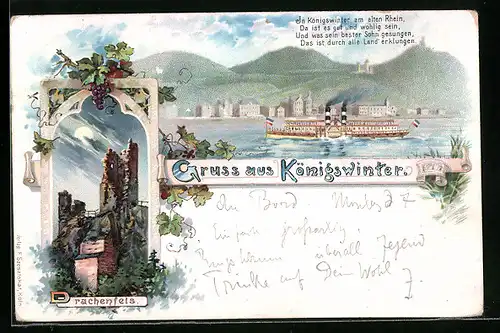 In Königswinter am alten Rhein,
Da ist es gut und wohlig sein,
Und was sein bester Sohn gesungen,
Das ist durch alle Land' erklungen.
Gruss aus Königswinter.
An Bord. Montag
Einfach großartig,
überall
Trinke auf Dein Wohl
Drachenfels.